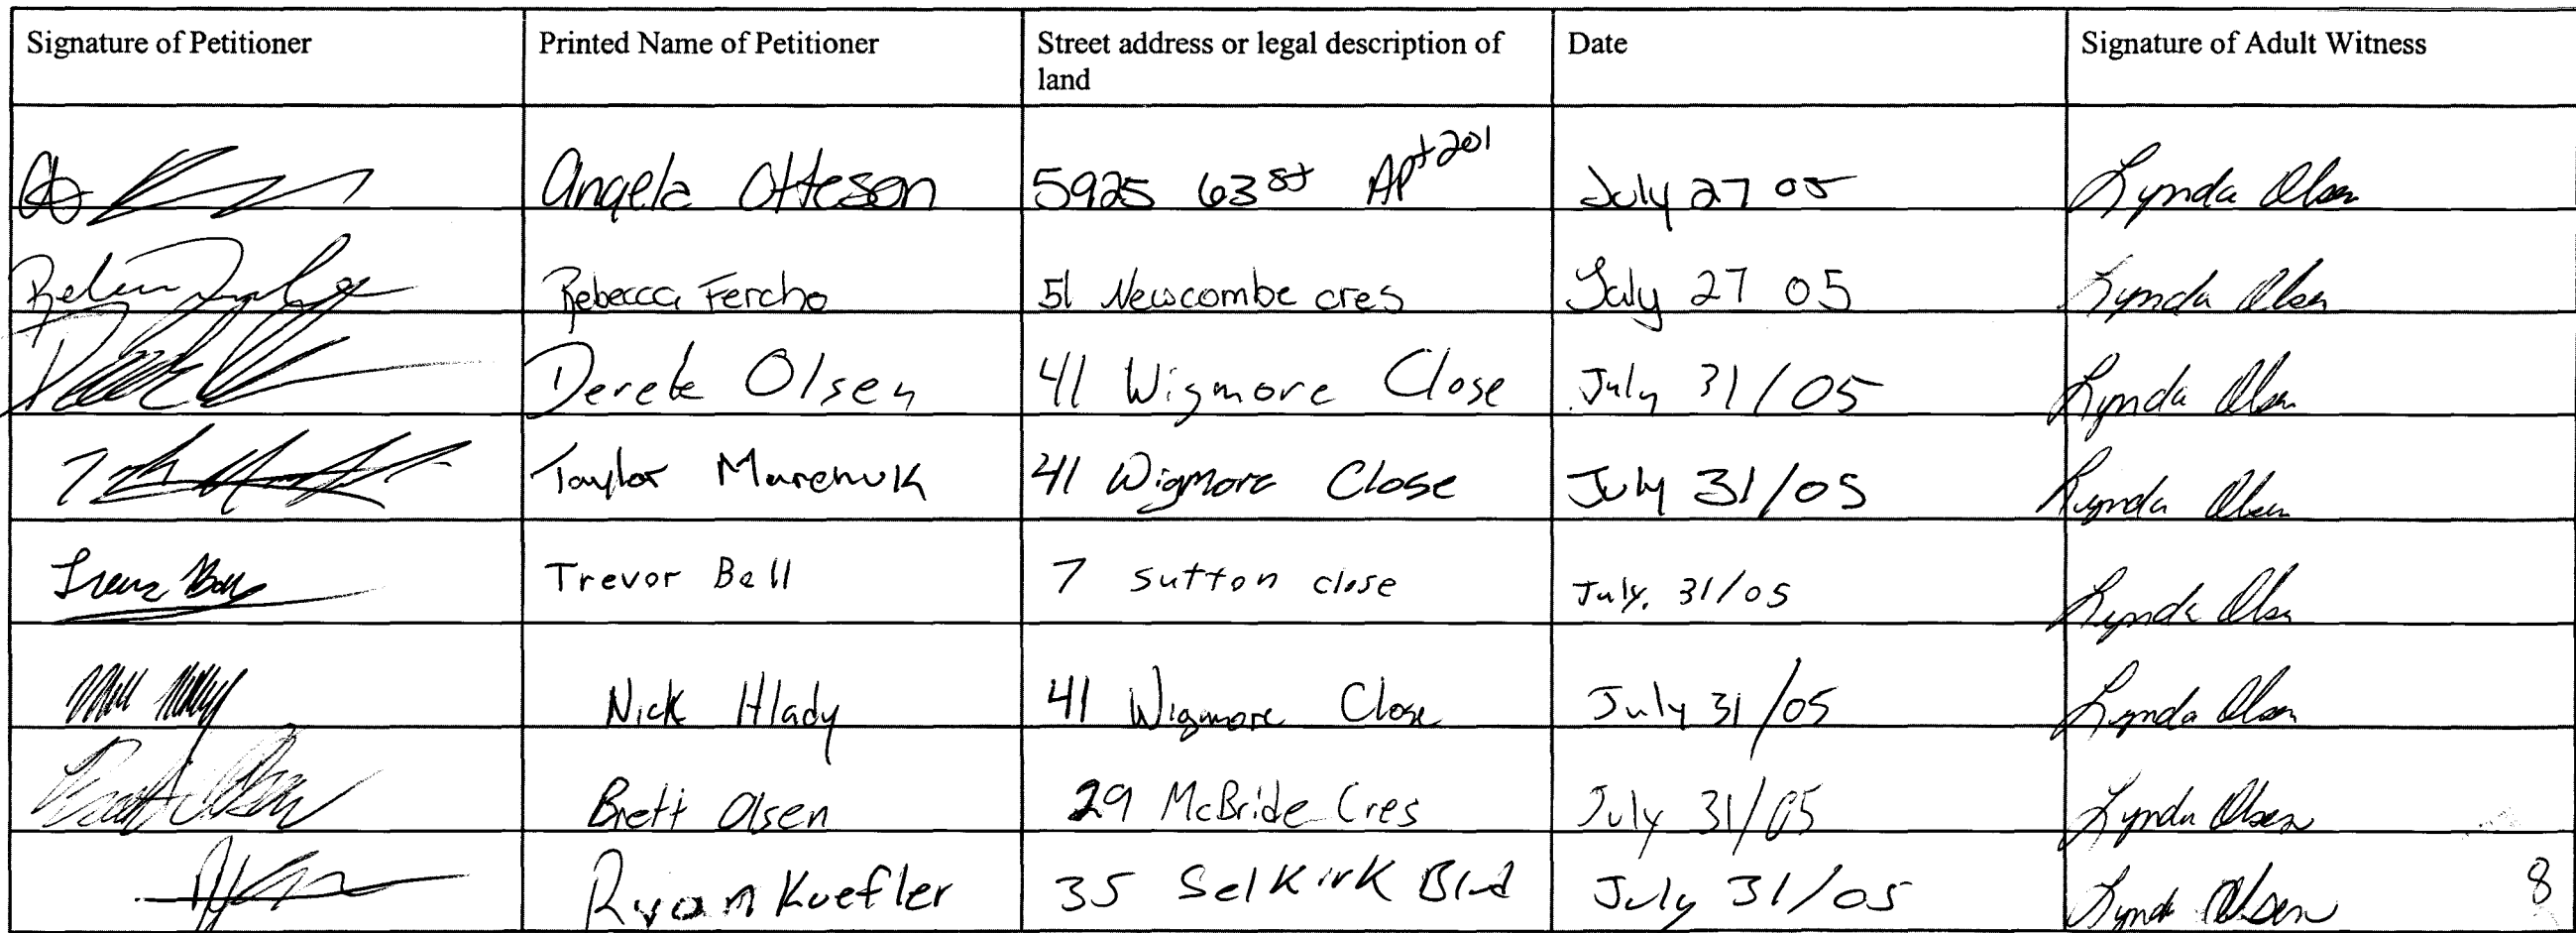 Signature of Petitioner Printed Name of Petitioner Street address or legal description of land Date Signature of Adult Witness
Angela Otteson 5925 63 st Apt 201 July 27 05 Lynda Olsen
Rebecca Fercho 51 Newcombe cres July 27 05 Lynda Olsen
Derek Olsen 41 Wigmore Close July 31/05 Lynda Olsen
Taylor Marchuk 41 Wigmore Close July 31/05 Lynda Olsen
Trevor Bell Trevor Bell 7 Sutton close July. 31/05 Lynda Olsen
Nick Hlady 41 Wigmore Close July 31/05 Lynda Olsen
Brett Olsen Brett Olsen 29 McBride Cres July 31/05 Lynda Olsen
Ryan Kuefler 35 Selkirk Blvd July 31/05 Lynda Olsen 8